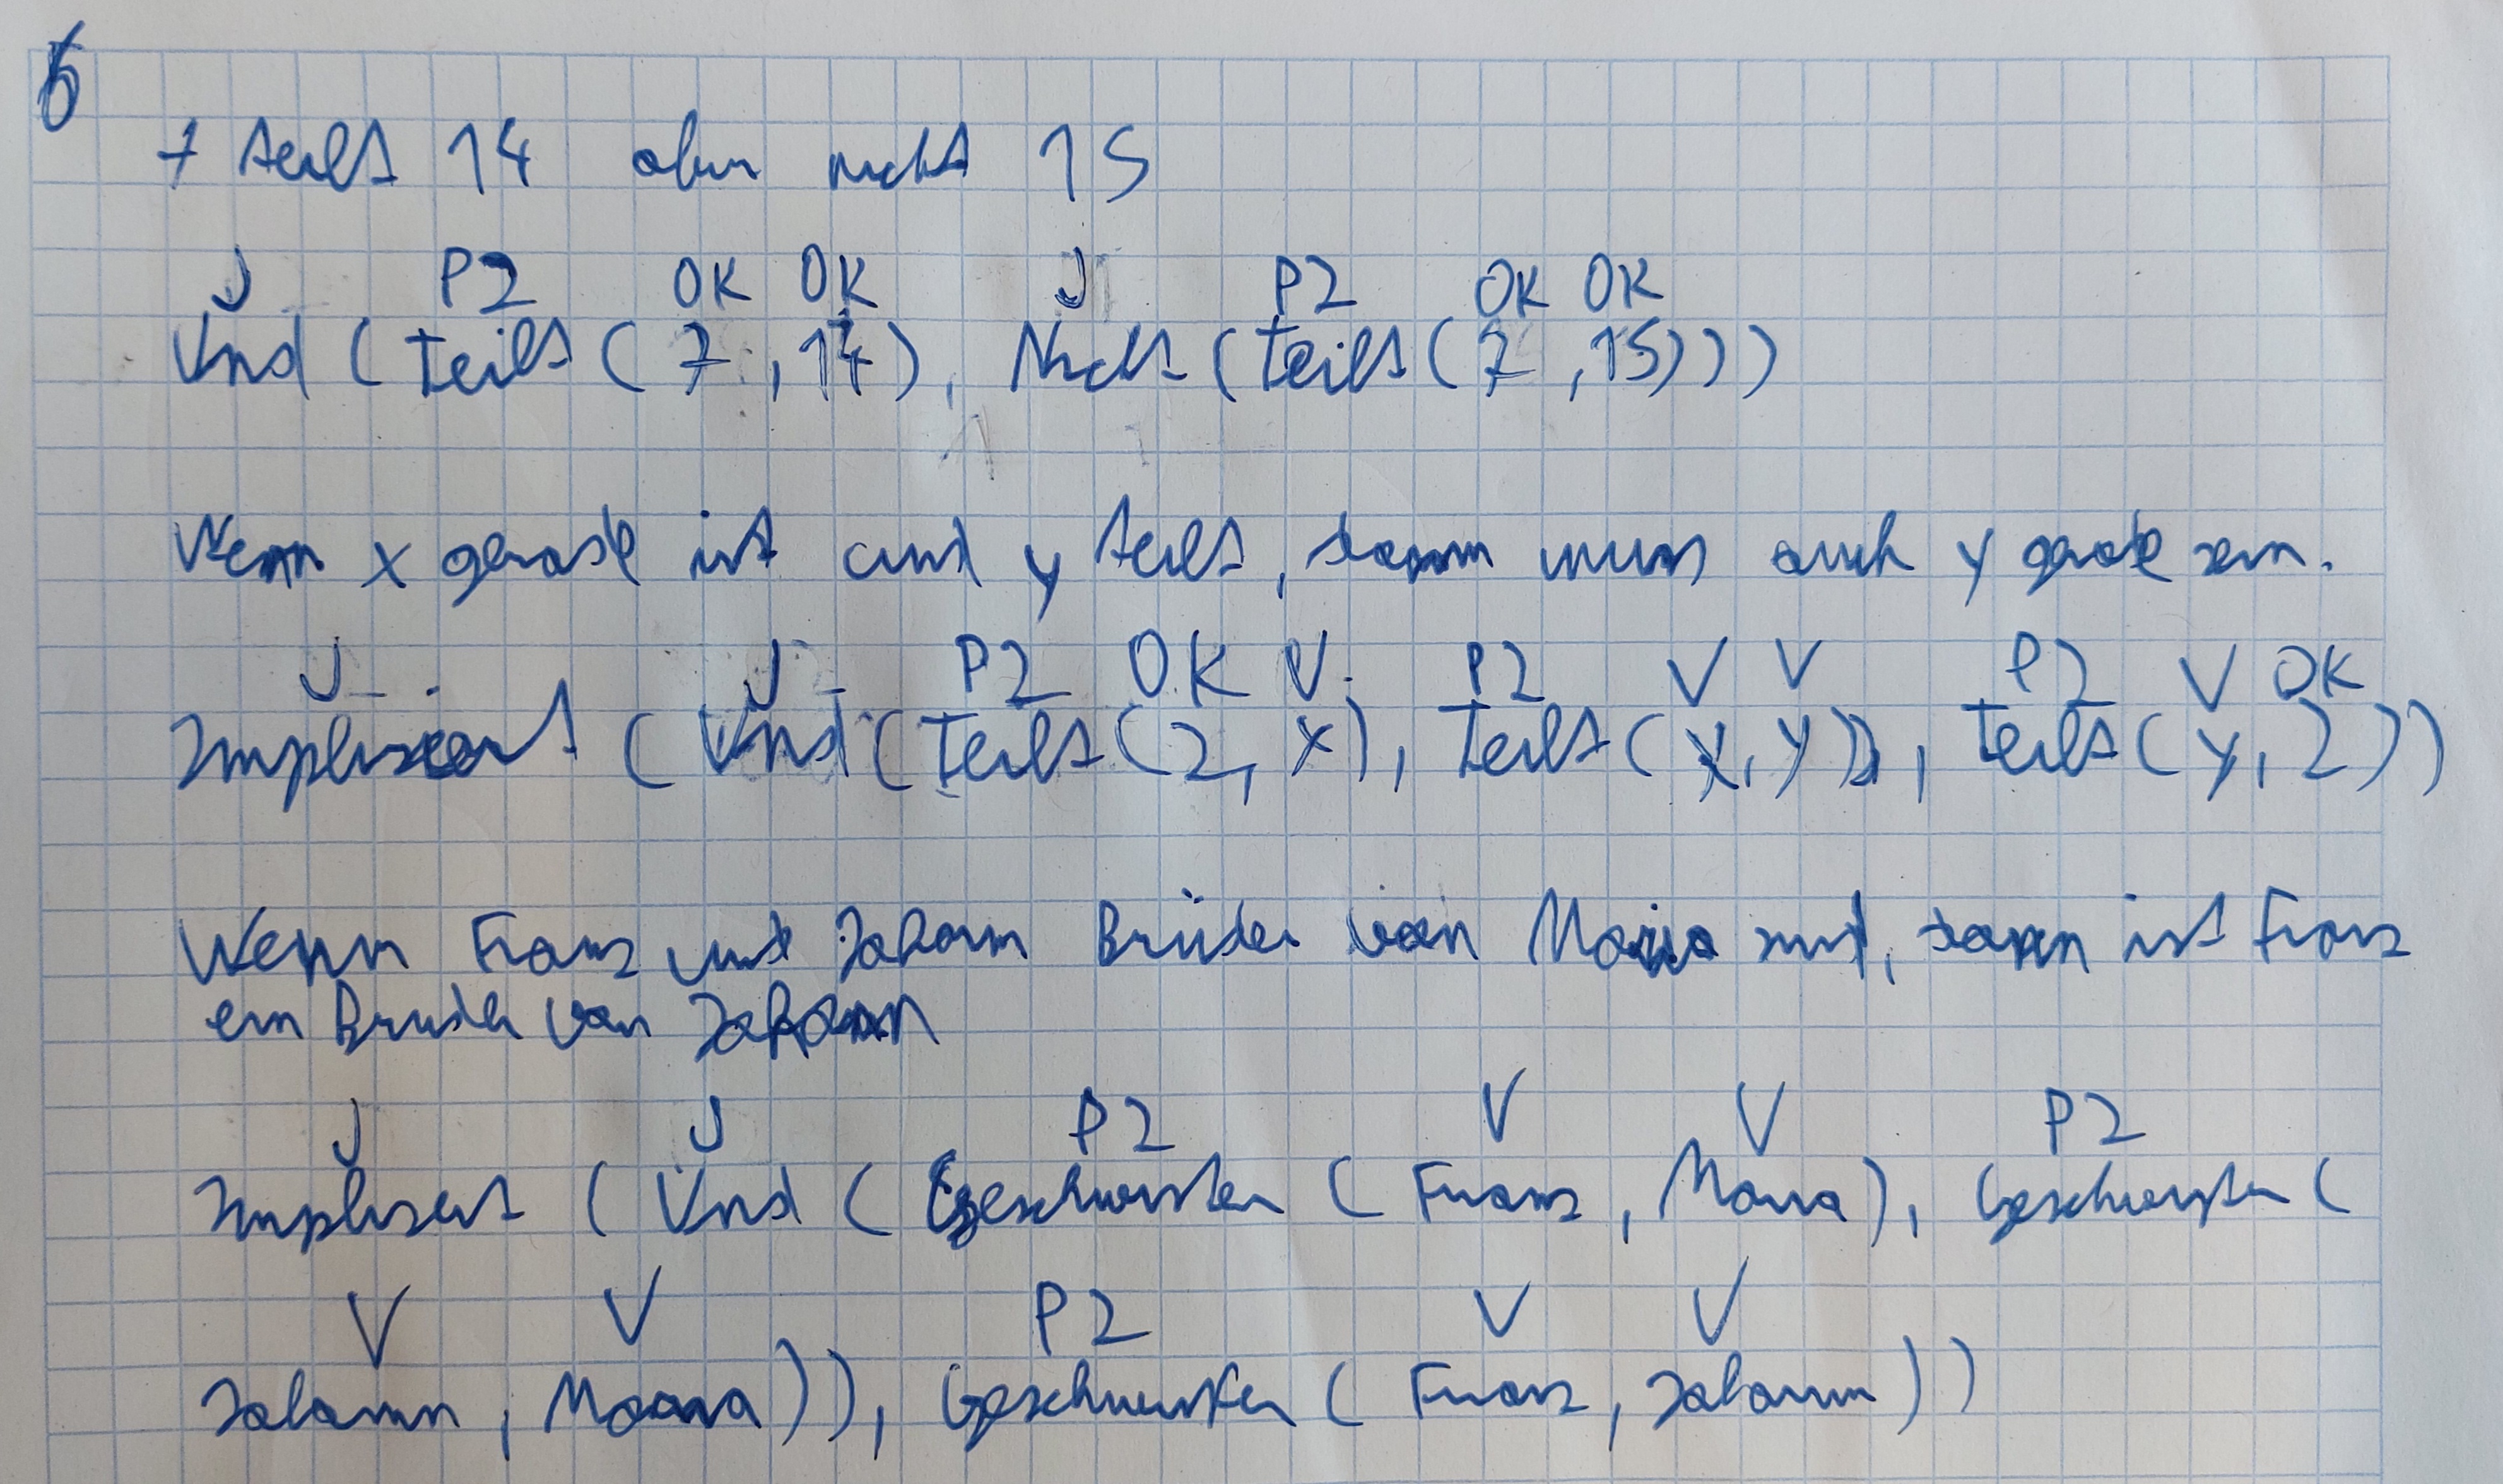 6
7 teilt 14 aber nicht 15
J P2 OK OK J P2 OK OK
Und (teilt (7, 14), Nicht (teilt (7, 15)))
Wenn x gerade ist und y teilt, dann muss auch y gerade sein.
J J P2 OK V P2 V V P2 V OK
Impliziert (Und (Teilt (2, x), Teilt (x, y)), teilt (y, 2))
Wenn Franz und Johann Brüder von Maria sind, dann ist Franz
ein Bruder von Johann
J J P2 V V P2
Impliziert (Und (Geschwister (Franz, Maria), Geschwister (
V V P2 V V
Johann, Maria)), Geschwister (Franz, Johann))